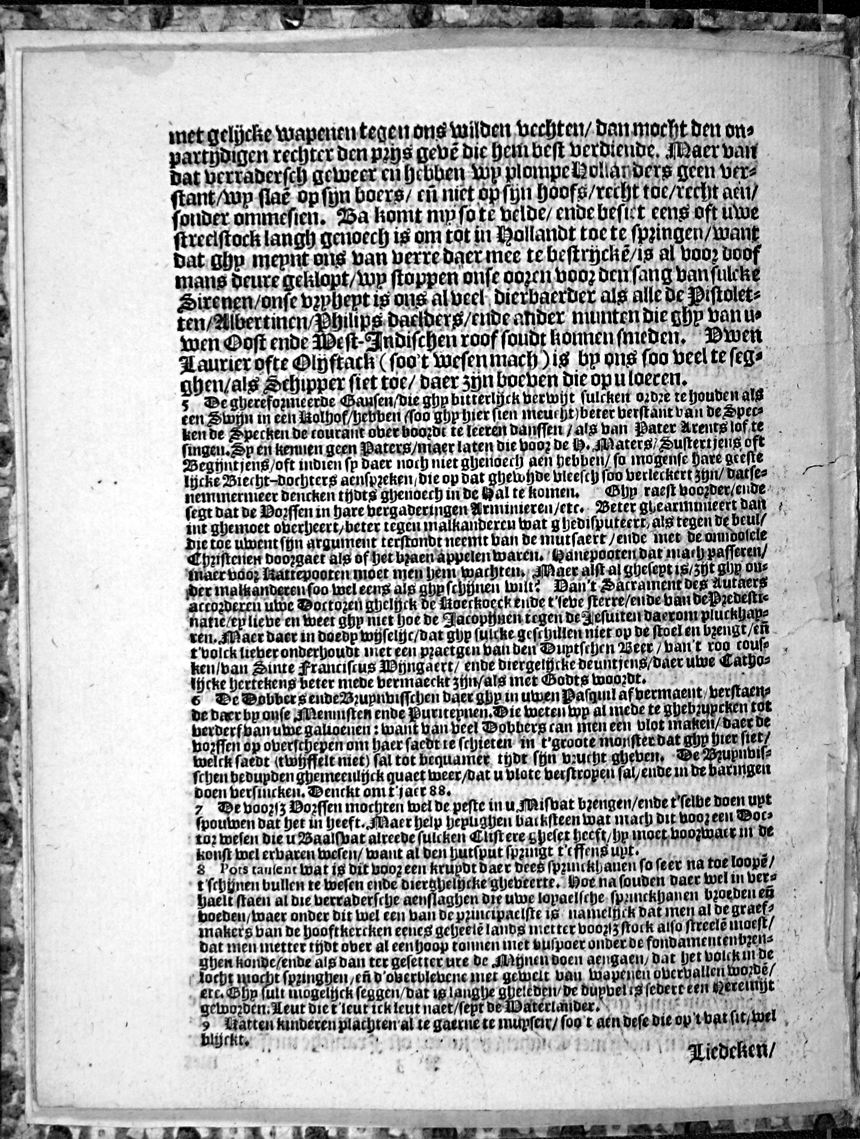 met gelijcke wapenen tegen ons wilden vechten/ dan mocht den on-
partijdigen rechter den prijs gevē die hem best verdiende. Maer van
dat verradersch geweer en hebben wy plompe Hollanders geen ver-
stant/wy slaē op sijn boers/ eñ niet op sijn hoofs/recht toe/recht aen/
sonder ommesien. Ba komt my so te velde/ ende besiet eens oft uwe
streelstock langh genoech is om tot in Hollandt toe te springen/want
dat ghy meynt ons van verre daer mee te bestrijckē/is al voor doof
mans deure geklopt/wy stoppen onse ooren voor den sang van sulcke
Sirenen/onse vryheyt is ons al veel dierbaerder als alle de Pistolet-
ten/Albertinen/Philips daelders/ende ander munten die ghy van u-
wen Oost ende West-Indischen roof soudt konnen smeden. Uwen
Laurier ofte Olijftack (soo't wesen mach) is by ons soo veel te seg-
ghen/als Schipper siet toe/ daer zijn boeven die op u loeren.
5 De ghereformeerde Gansen/die ghy bitterlijck verwijt sulcken ordre te houden als
een Swijn in een Kolhof/hebben (soo ghy hier sien meucht) beter verstant van de Spec-
ken de Specken de courant over boordt te leeren danssen / als van Pater Arents lof te
singen. Sy en kennen geen Paters/maer laten die voor de H. Maters/Sustertjens oft
Begijntjens/oft indien sy daer noch niet ghenoech aen hebben/ so mogense hare geeste
lijcke Biecht-dochters aenspreken/die op dat ghewijde vleesch soo verleckert zijn/ datse-
nemmermeer dencken tijdts ghenoech in de Hal te komen. Ghy raest voorder/ende
segt dat de Vorssen in hare vergaderingen Arminieren/etc. Beter ghearminieert dan
int ghemoet overheert/beter tegen malkanderen wat ghedisputeert/als tegen de beul/
die toe uwent sijn argument terstondt neemt van de mutsaert/ende met de onnoosele
Christenen doorgaet als of het braen appelen waren. Hanepooten dat mach passeren/
maer voor Kattepooten moet men hem wachten. Maer alst al gheseyt is/zijt ghy on-
der malkanderen soo wel eens als ghy schijnen wilt? Van't Sacrament des Autaers
accorderen uwe Doctoren ghelijck de Koeckoeck ende t'seve sterre/ende van de Predesti-
natie/ey lieve en weet ghy niet hoe de Jacopijnen tegen de Jesuiten daerom pluckhay-
ren. Maer daer in doedy wijselijc/dat ghy sulcke geschillen niet op de stoel en brengt/eñ
t'volck liever onderhoudt met een praetgen van den Duytschen Beer/van't roo cous-
ken/van Sinte Franciscus Wijngaert/ ende diergelijcke deuntjens/daer uwe Catho-
lijcke hertekens beter mede vermaeckt zijn/als met Godts woordt.
6 De Dobbers ende Bruynvisschen daer ghy in uwen Pasquil af vermaent/verstaen-
de daer by onse Mennisten ende Puriteynen. Die weten wy al mede te ghebruycken tot
verderf van uwe galioenen: want van veel Dobbers can men een vlot maken/daer de
vorssen op overschepen om haer saedt te schieten in t'groote monster dat ghy hier siet/
welck saedt (twijffelt niet) sal tot bequamer tijdt sijn vrucht gheven. De Bruynvis-
schen beduyden ghemeenlijck quaet weer/dat u vlote verstropen sal/ende in de baringen
doen versincken. Denckt om t'jaer 88.
7 De voorsz Vorssen mochten wel de peste in u Misvat brengen/ende t'selve doen uyt
spouwen dat het in heeft. Maer help heylighen backsteen wat mach dit voor een Doc-
tor wesen die u Baalsvat alreede sulcken Clistere gheset heeft/hy moet voorwaer in de
konst wel ervaren wesen/ want al den hutsput springt t'effens uyt.
8 Pots tausent wat is dit voor een kruydt daer dees sprinckhanen so seer na toe loopē/
t'schijnen bullen te wesen ende dierghelijcke ghebeerte. Hoe na souden daer wel in ver-
haelt staen al die verradersche aenslaghen die uwe lopaelsche sprinckhanen broeden eñ
voeden/waer onder dit wel een van de principaelste is namelijck dat men al de graef-
makers van de hooftkercken eenes geheelē lands metter voorsz stock also streelē moest/
dat men metter tijdt over al een hoop tonnen met buspoer onder de fondamenten bren-
ghen konde/ende als dan ter gesetter ure de Mijnen doen aengaen/ dat het volck in de
locht mocht springhen/eñ d'overblevene met gewelt van wapenen overvallen wordē/
etc. Ghy sult mogelijck seggen/dat is langhe gheleden/de duyvel is sedert een Heremijt
geworden. Leut die t'leut ick leut naet/seyt de Waterlander.
9 Katten kinderen plachten al te gaerne te muysen/ soo't aen dese die op't vat sit/wel
blijckt.
Liedeken/